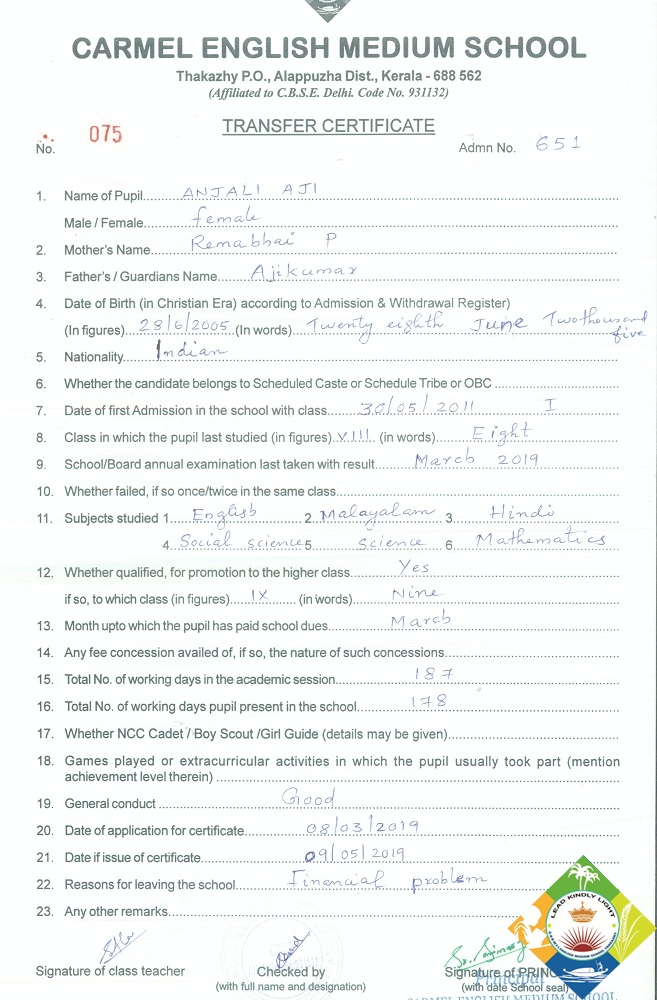 CARMEL ENGLISH MEDIUM SCHOOL
Thakazhy P.O., Alappuzha Dist., Kerala - 688 562
(Affiliated to C.B.S.E. Delhi. Code No. 931132)
TRANSFER CERTIFICATE
No. 075 Admn No. 651
1. Name of Pupil ANJALI AJI
Male / Female female
2. Mother's Name Remabhai P
3. Father's / Guardians Name Ajikumar
4. Date of Birth (in Christian Era) according to Admission & Withdrawal Register)
(In figures) 28/6/2005 (In words) Twenty eighth June Twothousand five
5. Nationality Indian
6. Whether the candidate belongs to Scheduled Caste or Schedule Tribe or OBC
7. Date of first Admission in the school with class 30/05/2011 I
8. Class in which the pupil last studied (in figures) VIII (in words) Eight
9. School/Board annual examination last taken with result March 2019
10. Whether failed, if so once/twice in the same class
11. Subjects studied 1 English 2 Malayalam 3 Hindi
4 Social science 5 Science 6 Mathematics
12. Whether qualified, for promotion to the higher class Yes
if so, to which class (in figures) IX (in words) Nine
13. Month upto which the pupil has paid school dues March
14. Any fee concession availed of, if so, the nature of such concessions
15. Total No. of working days in the academic session 187
16. Total No. of working days pupil present in the school 178
17. Whether NCC Cadet / Boy Scout /Girl Guide (details may be given)
18. Games played or extracurricular activities in which the pupil usually took part (mention
achievement level therein)
19. General conduct Good
20. Date of application for certificate 08/03/2019
21. Date if issue of certificate 09/05/2019
22. Reasons for leaving the school Financial problem
23. Any other remarks
LEAD KINDLY LIGHT
Signature of class teacher Checked by Signature of PRINC
(with full name and designation) (with date School seal)
Principal
CARMEL ENGLISH MEDIUM SCHOOL